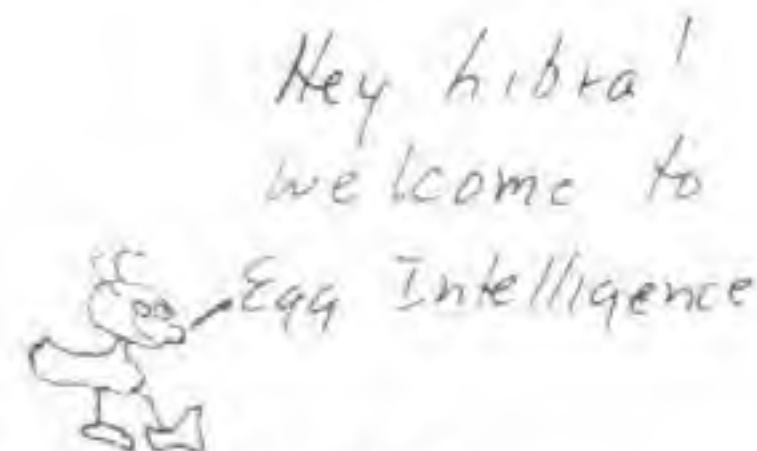 Hey hibra!
welcome to
Egg Intelligence